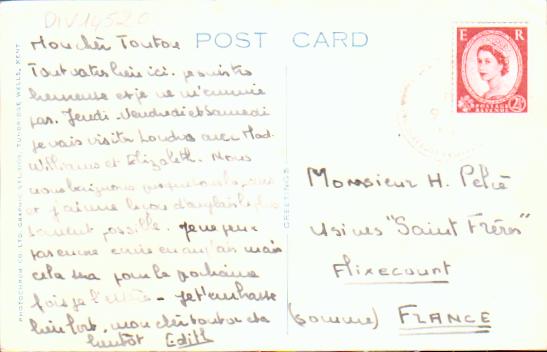 DIV14520
POST CARD
E R
POSTAGE REVENUE
2½D
PHOTOCHROM CO. LTD. GRAPHIC STUDIOS, TUNBRIDGE WELLS, KENT
GREETINGS
Mon cher Toutou
Tout va très bien ici. je suis très
heureuse et je ne m'ennuie
pas. Jeudi. Vendredi et Samedi
je vais visiter Londres avec Mad.
Williams et Elizabeth. Nous
nous baignons
et j'aime
possible. je ne peux
pas encore mais
cela sera pour la prochaine
fois je l'espère - je t'embrasse
bien fort. mon cher toutou et à
bientôt Edith
Monsieur H. Petié
Usines "Saint Frères"
Flixecourt
(Somme) FRANCE